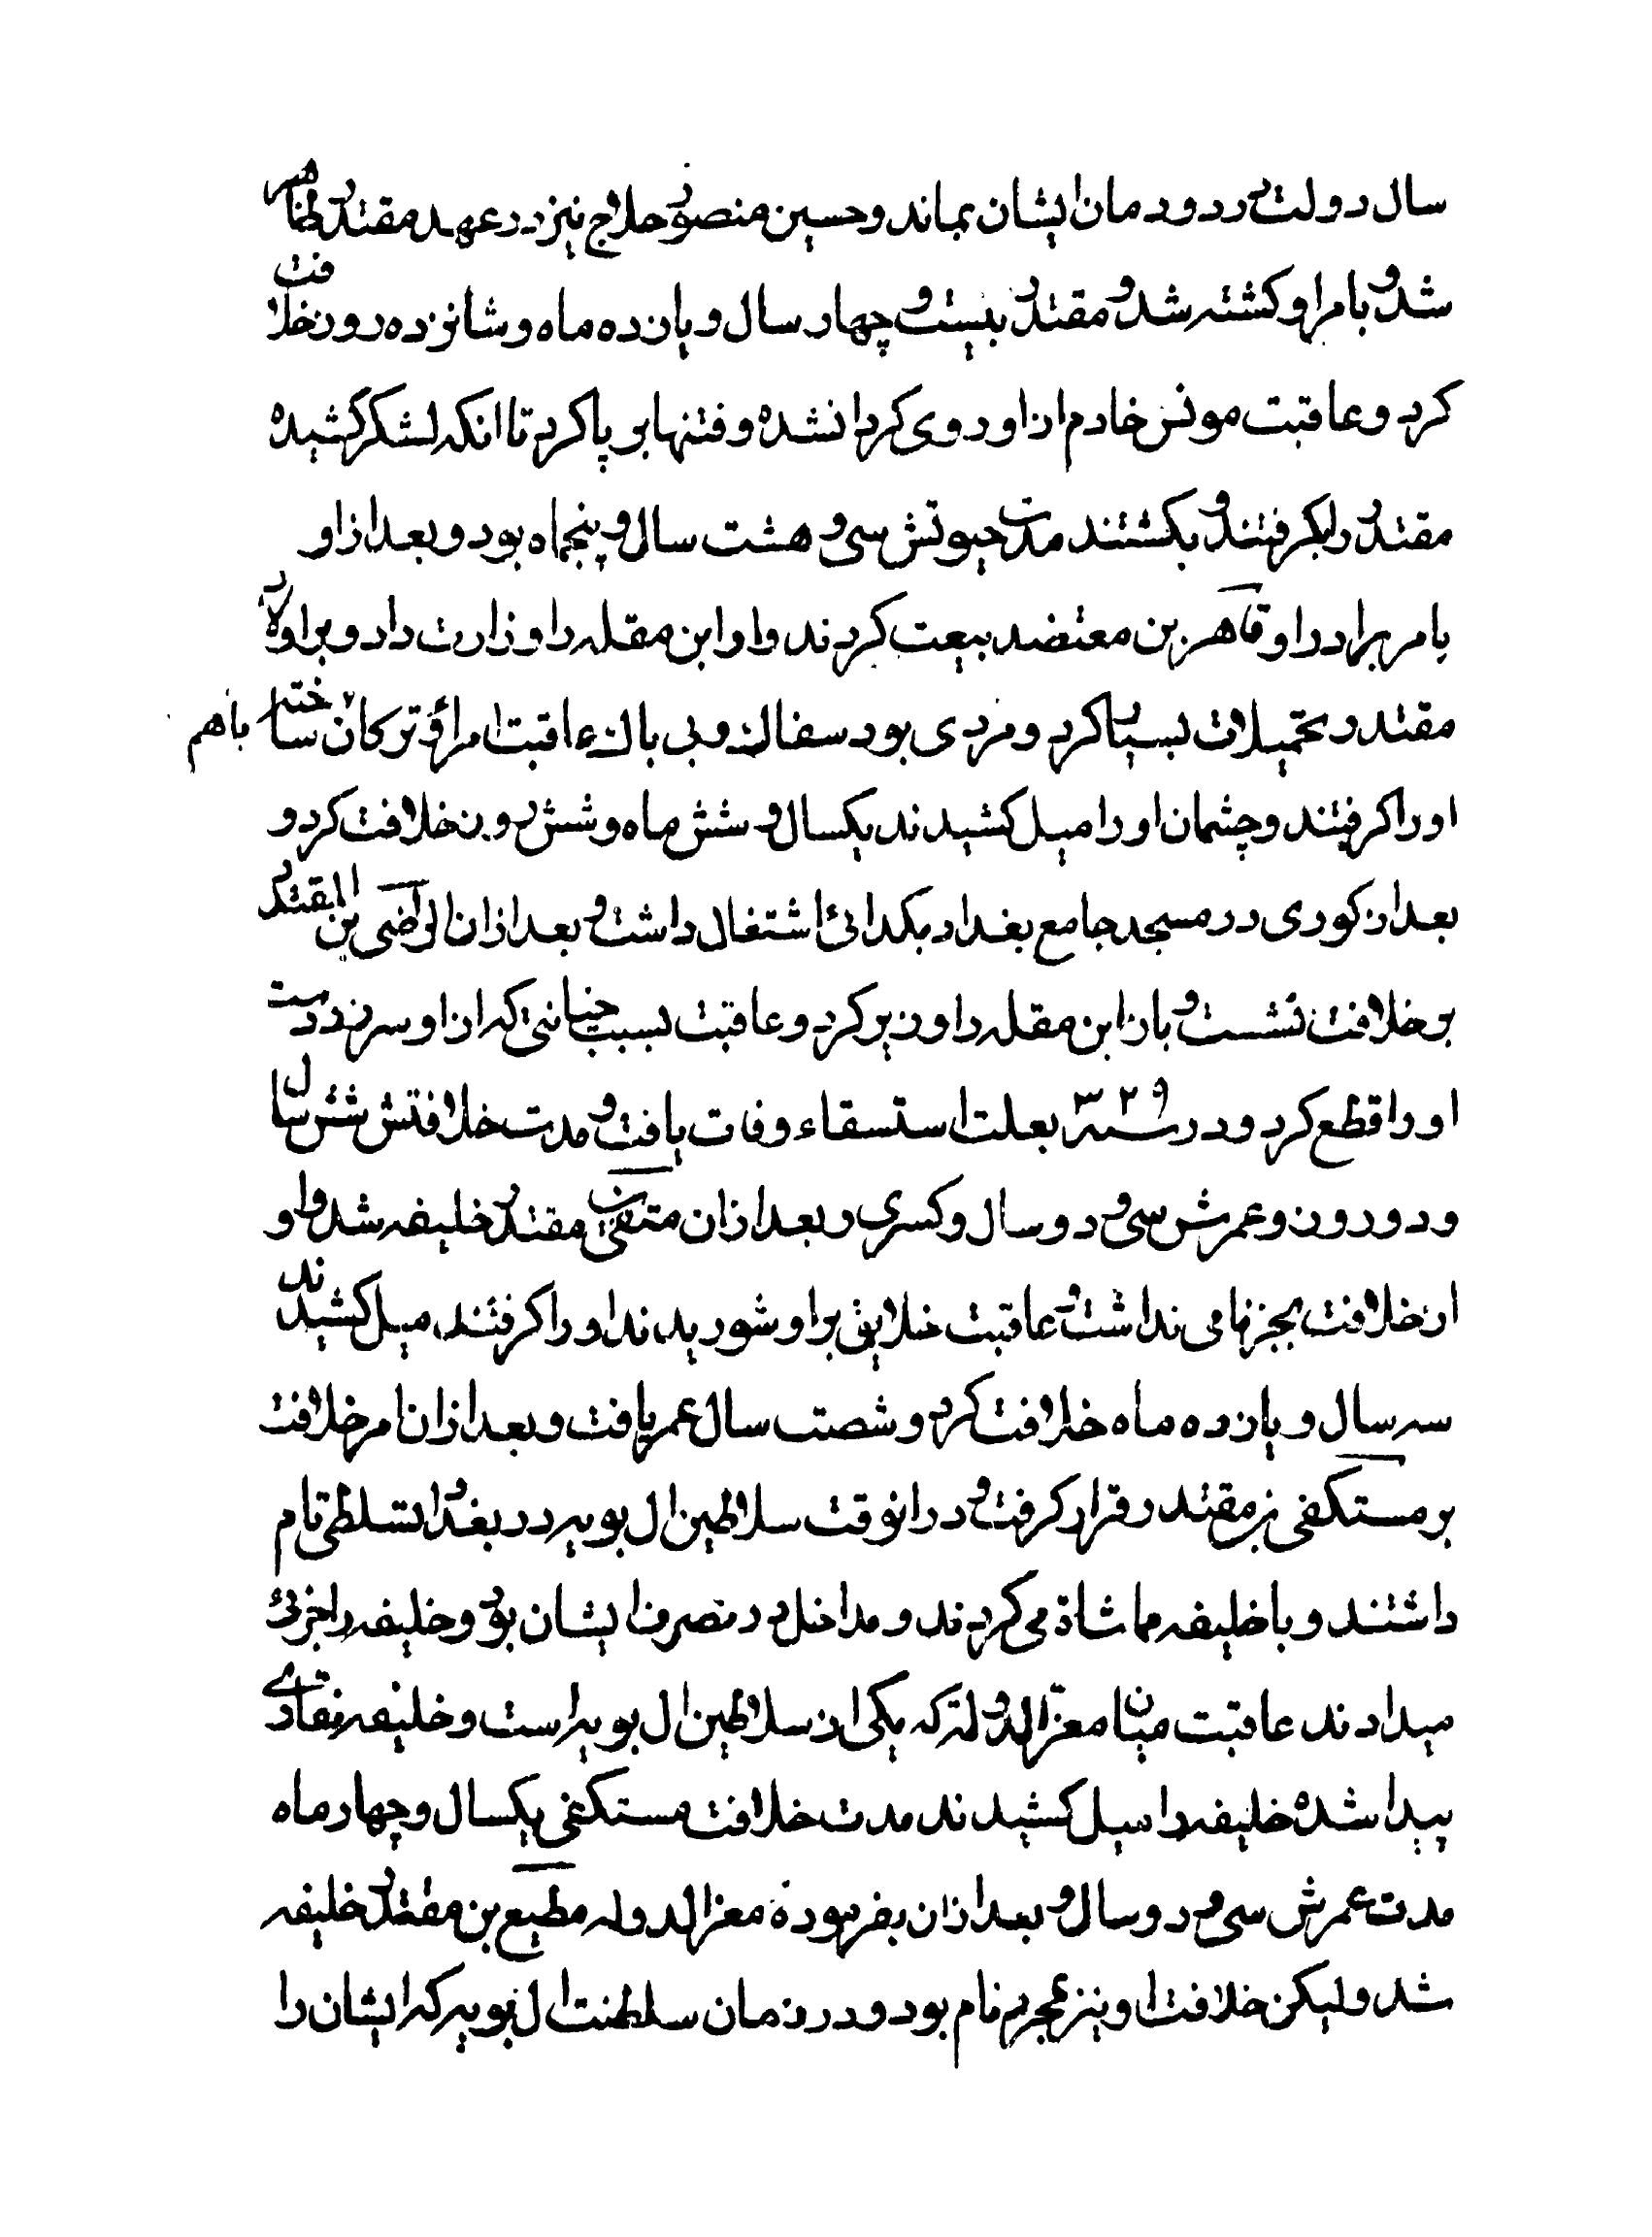 سال دولت در دودمان ایشان بماند و حسین منصور حلاج نیز در عهد مقتدر ظاهر
شد و بامر او کشته شد و مقتدر بیست و چهار سال و یازده ماه و شانزده روز خلافت
کرد و عاقبت مونس خادم از او روی کردانشده و فتنها بر پا کرد تا انکه لشکر کشیده
مقتدر را بکرفتند و بکشتند مدت حیوتش سی و هشت سال و پنجماه بود و بعد از او
با مر برادر او قاهر بن معتضد بیعت کردند و او ابن مقله را وزارت داد و بر اولاد
مقتدر تحمیلات بسیار کرد و مردی بود سفاک و بی باک عاقبت امراؤ ترکان ساخته باهم
او را کرفتند و چشمان او را میل کشیدند یکسال و شش ماه و شش روز خلافت کرد و
بعد از کوری در مسجد جامع بغداد بکدائی اشتغال داشت و بعد از ان الراضی بن المقتدر
بر خلافت نشست و باز ابن مقله را وزیر کرد و عاقبت بسبب خیانتی که از او سر زد دست
او را قطع کرد و در سنه ۳۲۹ بعلت استسقاء وفات یافت و مدت خلافتش شش سال
و دو روز و عمرش سی و دو سال و کسری و بعد از ان متقی بن مقتدر خلیفه شد و او
از خلافت بجز نامی نداشت و عاقبت خلایق بر او شوریدند او را کرفتند میل کشیدند
سه سال و یازده ماه خلافت کرد و شصت سال عمر یافت و بعد از ان امر خلافت
بر مستکفی بن مقتدر قرار کرفت و در انوقت سلاطین ال بویه در بغداد تسلطی تام
داشتند و با خلیفه مماشاة می کردند و مداخل در تصرف ایشان بود و خلیفه را جزئی
میدادند عاقبت میان معز الدولة که یکی از سلاطین ال بویه است و خلیفه نقاری
پیدا شده خلیفه را میل کشیدند مدت خلافت مستکفی یکسال و چهار ماه
مدت عمرش سی و دو سال و بعد از ان بفرموده معز الدوله مطیع بن مقتدر خلیفه
شد و لیکن خلافت او نیز مجرد نام بود و در زمان سلطنت ال بویه که ایشان را